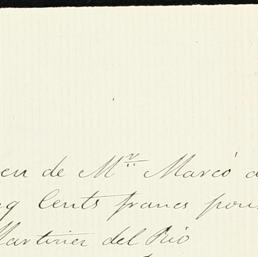 de Mr Marcó
Cents francs pour
Martinez del Rio